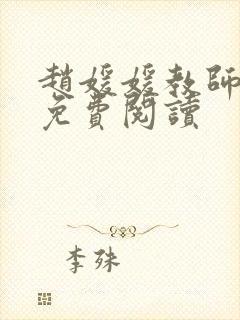 趙媛媛教師
免費閱讀
李殊